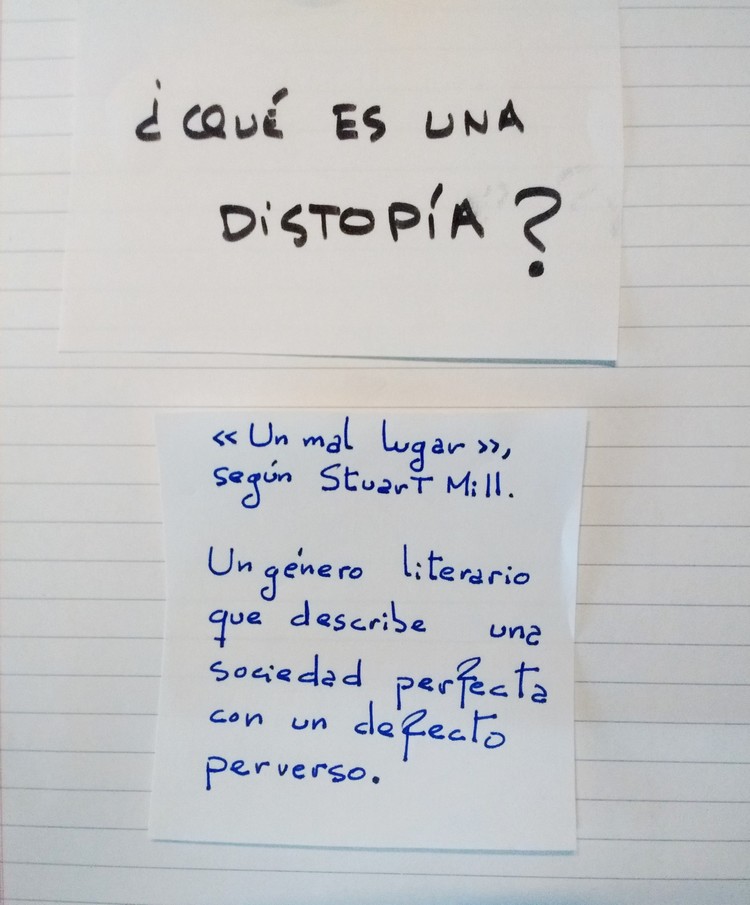 ¿QUÉ ES UNA
DISTOPÍA?
«Un mal lugar»,
según Stuart Mill.
Un género literario
que describe una
sociedad perfecta
con un defecto
perverso.